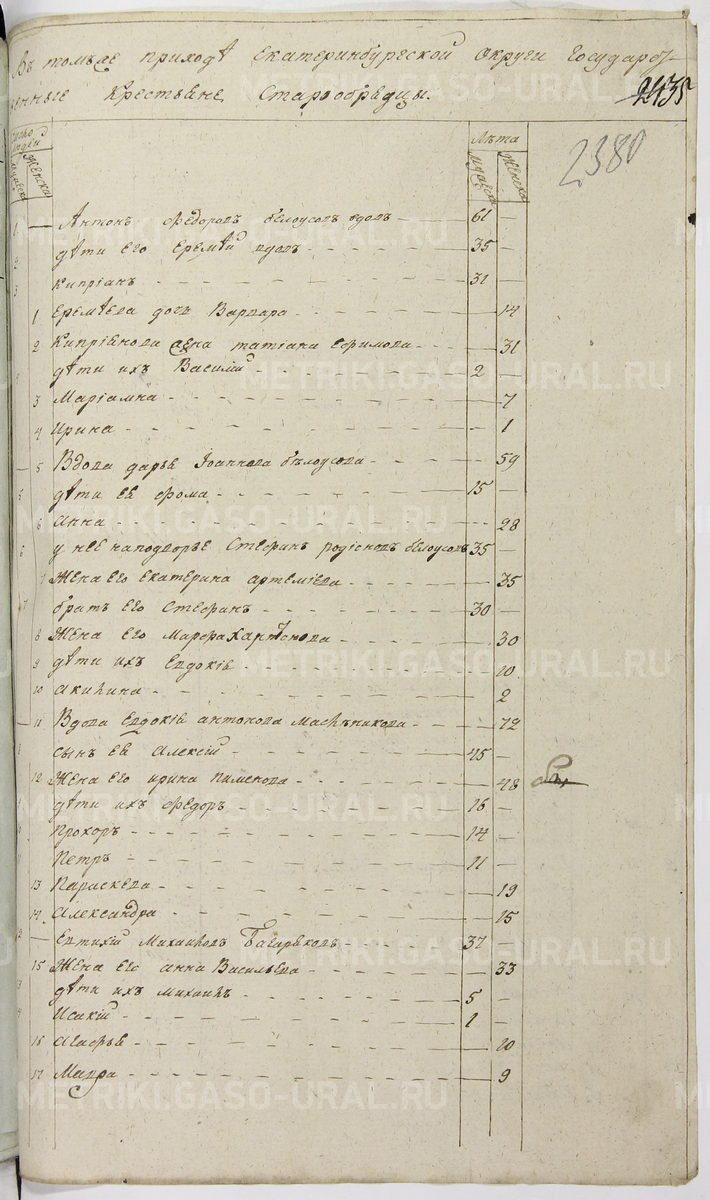 Въ томъже приходѣ Екатеринбургской Округи Государст-
венные Крестьяне, Старообрядцы.
2435
2380
Число людей
Мужеска
Женска
Лѣта
мужеска
Женска
1 — Антонъ Ѳедоровъ белоусовъ вдовъ 61 —
2 дѣти Его Еремѣй вдовъ 35 —
3 Кипріанъ 31 —
1 Еремѣева дочь Варвара — 14
2 Кипріянова жена татіана Ефимова — 31
4 дѣти ихъ Василій 2 —
3 Маріамна — 7
4 Ирина — 1
— 5 Вдова дарья Іоаннова бѣлоусова — 59
5 дѣти ея Фома 15 —
6 Анна — 28
6 у нее наподворье Стефанъ родіоновъ белоусовъ 35 —
7 Жена Его Екатерина артеміева — 35
7 братъ Его Стефанъ 30 —
8 Жена Его Марфа Харитонова — 30
9 дѣти ихъ Евдокія — 10
10 акилина — 2
— 11 Вдова Евдокія антонова Масльникова — 72
8 сынъ ея Алексій 45 —
12 Жена Его ирина пименова — 48
дѣти ихъ Ѳедоръ 16 —
Прохоръ 14 —
Петръ 11 —
13 Параскева — 19
14 Александра — 15
12 — Евтихій Михаиловъ 37 —
15 Жена Его анна Васильева — 33
дѣти ихъ михаилъ 5 —
Исакій 1 —
16 агафья — 10
17 Мавра — 9
METRIKI.GASO-URAL.RU